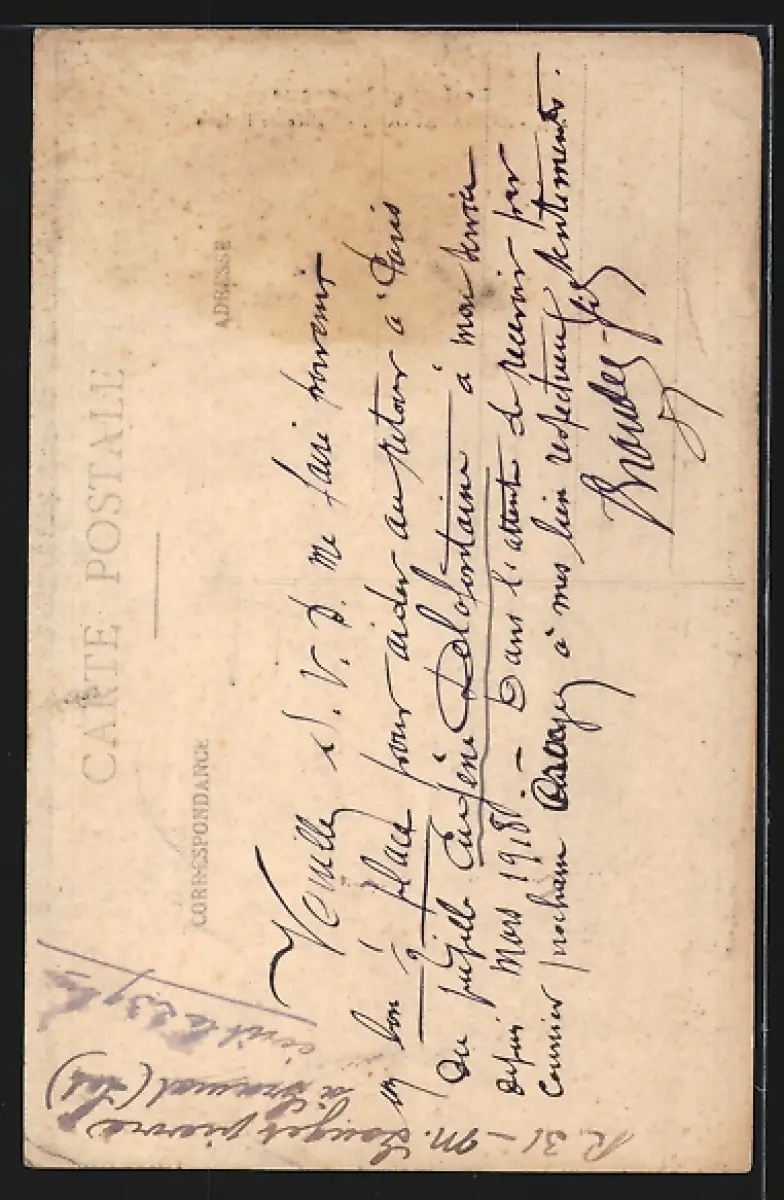 CARTE POSTALE
CORRESPONDANCE
ADRESSE
Veuillez S. V. P. me faire parvenir
un bon à place pour aider au retour à Paris
du pupille Eugène Delafontaine à mon service
depuis Mars 1918. — Dans l'attente de recevoir par
Courrier prochain agréez à mes bien respectueux sentiments.
R. 31 — M.
à (Lot)